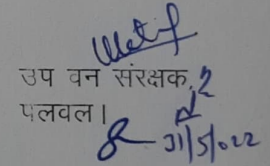 उप वन संरक्षक,
पलवल।
31/5/022